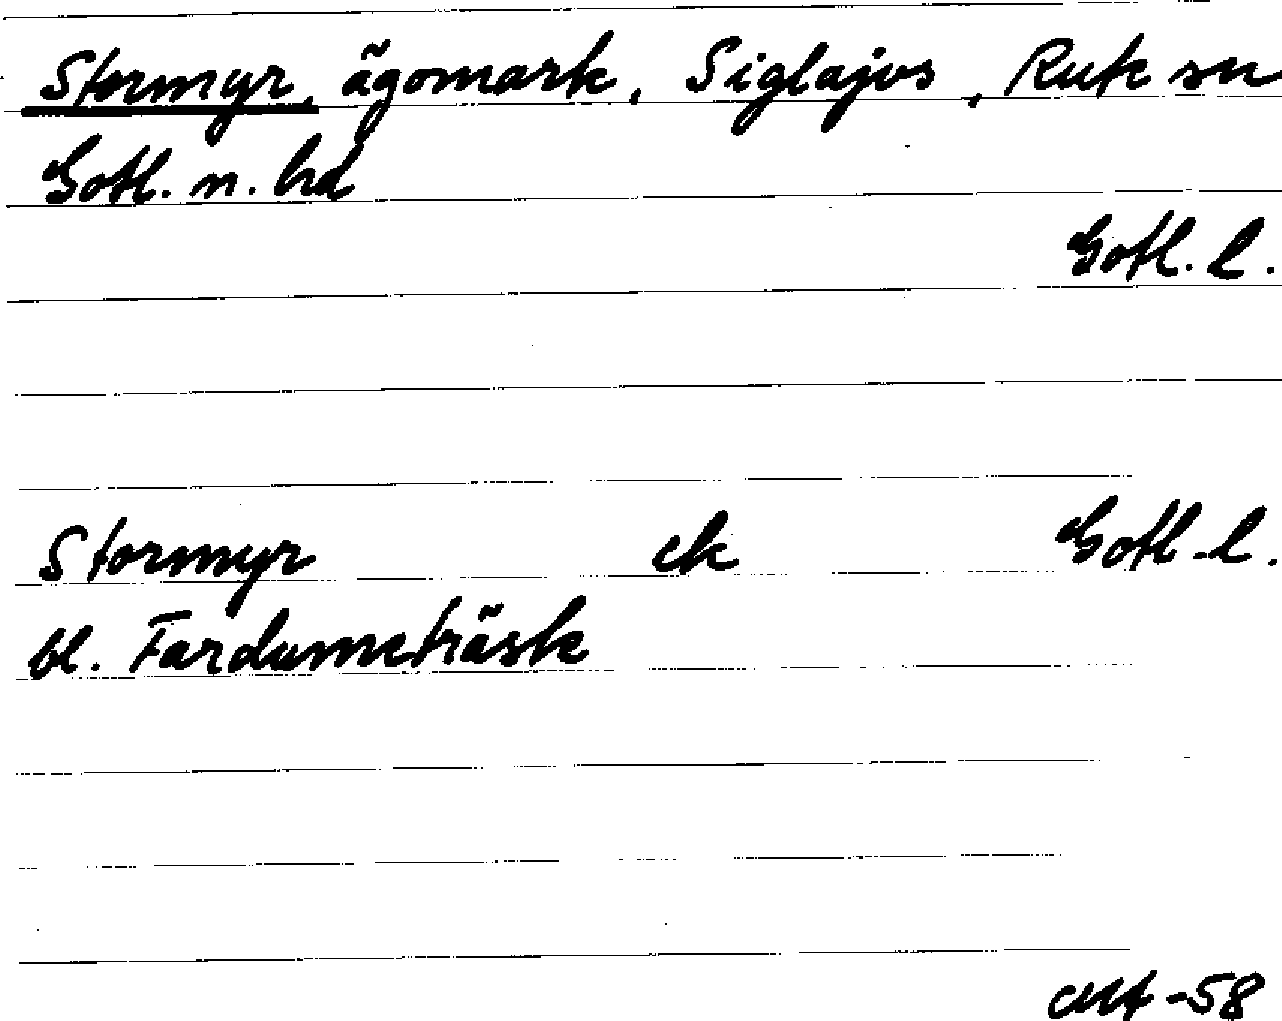 Stormyr, ägomark, Siglajvs, Rute sn
Gotl. n. hd
Gotl. l.
Stormyr ek Gotl. l.
bl. Fardumeträsk
-58